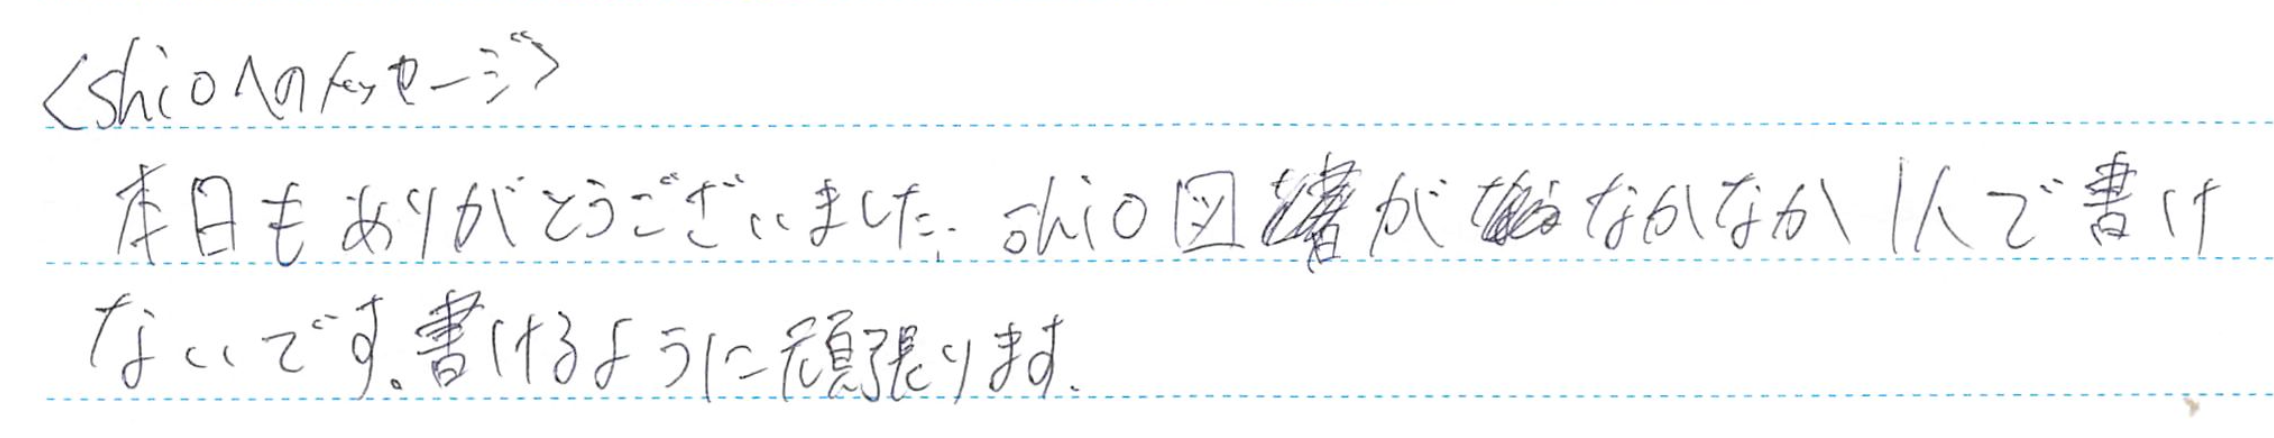 <shioへのメッセージ>
本日もありがとうございました. shio図が なかなか1人で書け
ないです。書けるように頑張ります.